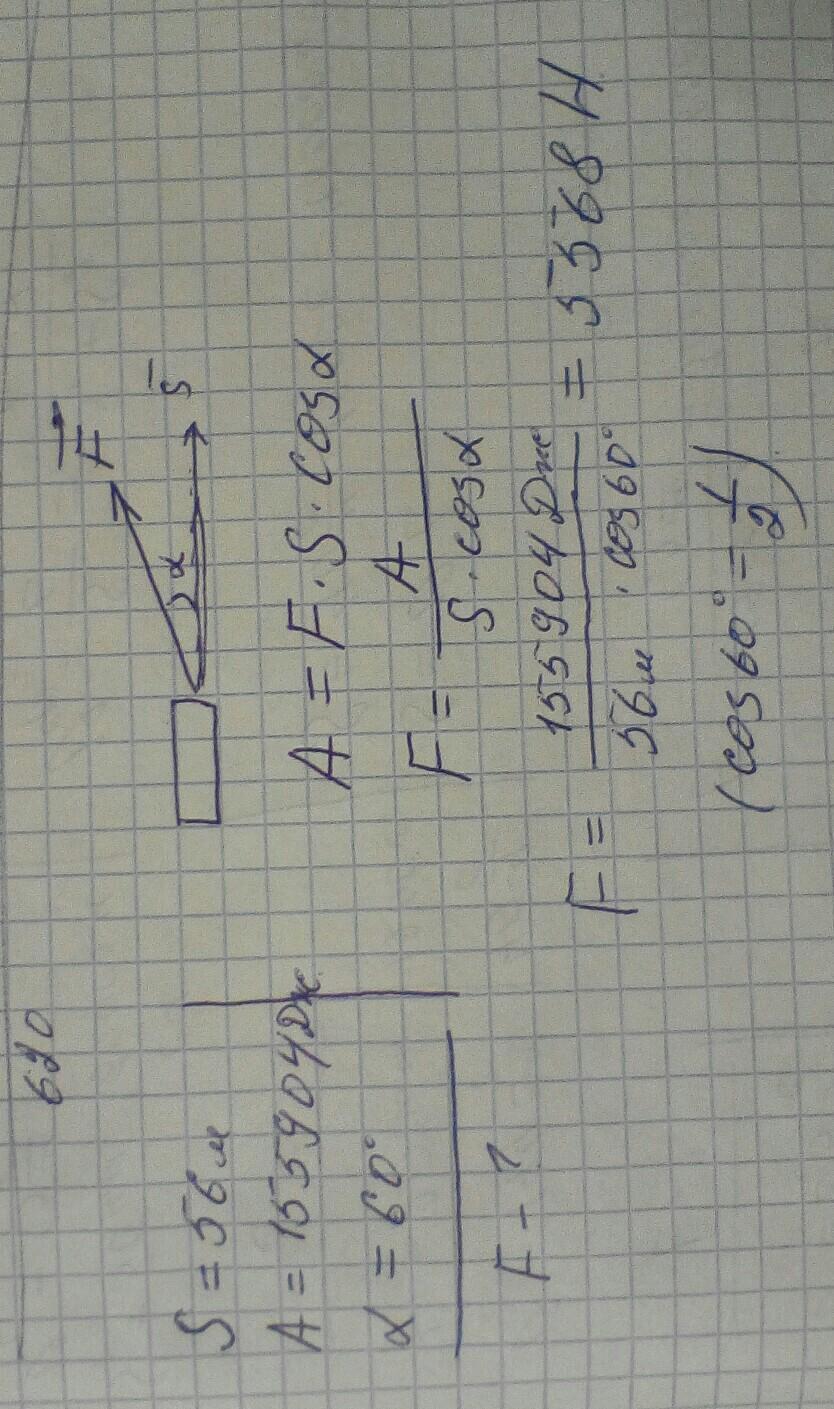 620
S = 56 м
A = 155904 Дж
α = 60°
F - ?
F S
α
A = F · S · cosα
F = A / S · cosα
F = 155904 Дж / 56 м · cos60° = 5568 Н
(cos60° = 1/2)